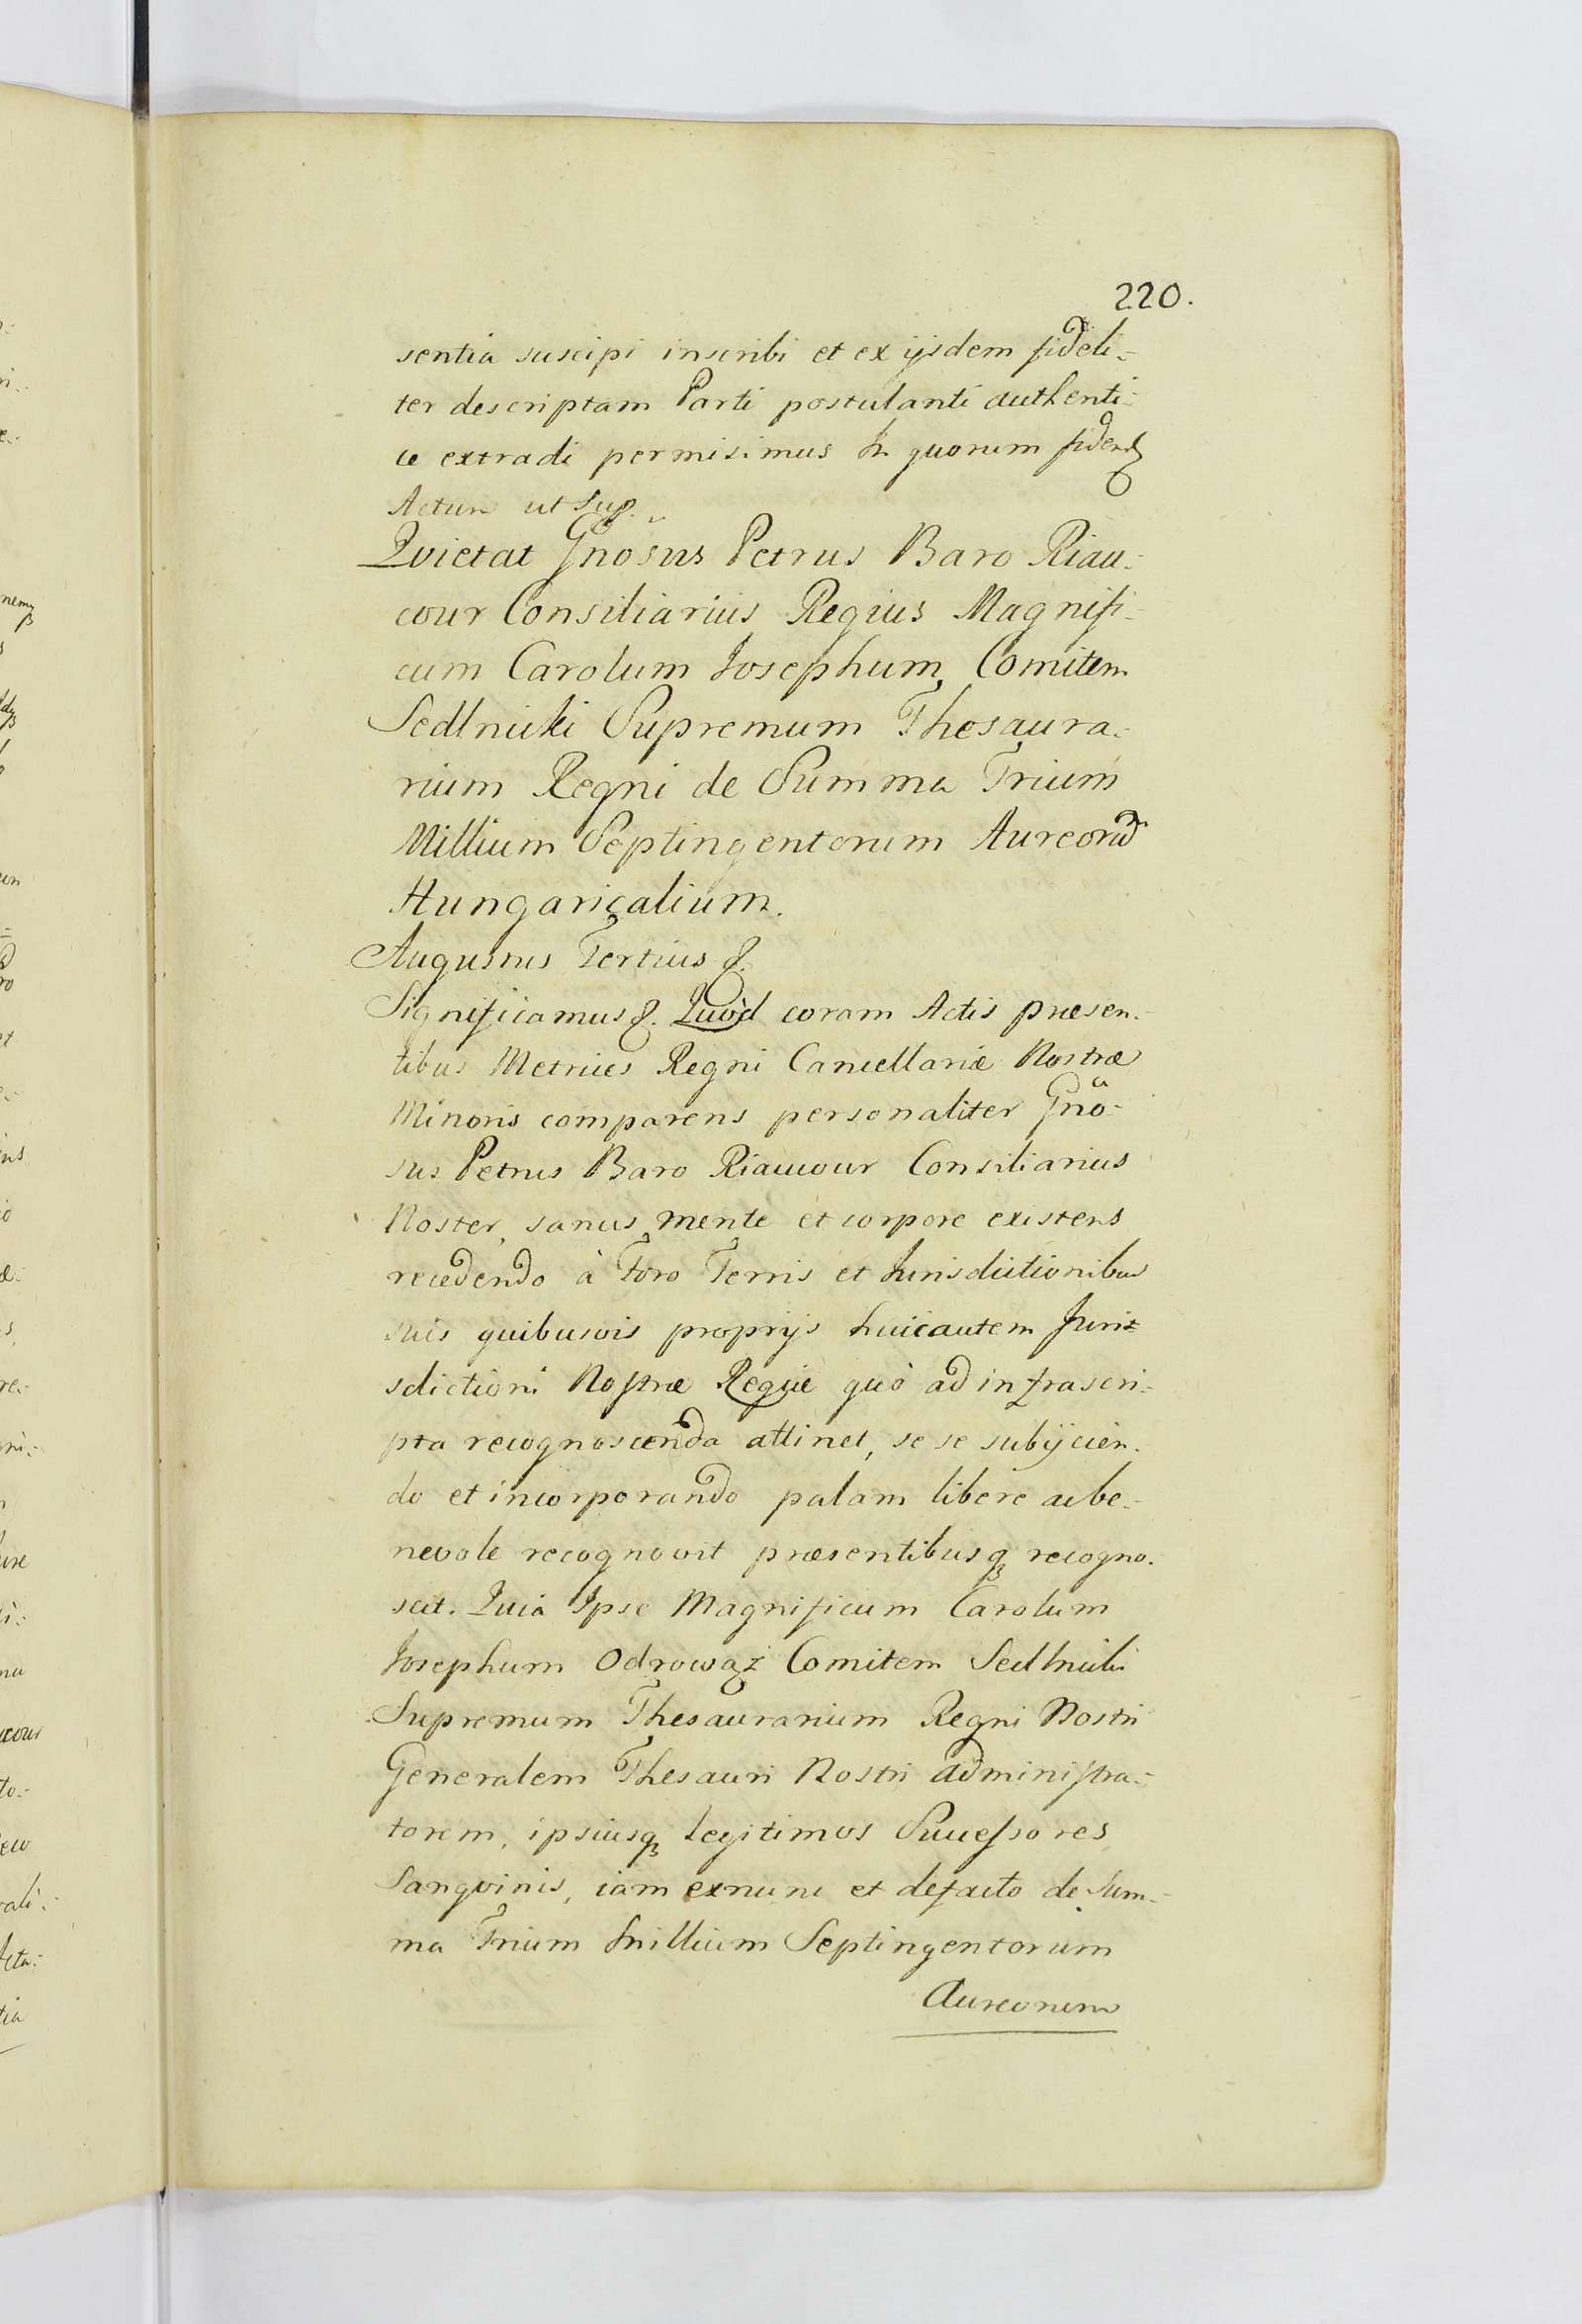 220.
sentia suscipi inscribi et ex ijsdem fideli-
ter descriptam Parti postulanti authenti-
ce extradi permisimus In quorum fidem
Actum ut Sup.
Quietat Gnosus Petrus Baro Riau-
cour Consiliarius Regius Magnifi-
cum Carolum Josephum Comitem
Sedlnicki Supremum Thesaura-
rium Regni de Summa Trium
Millium Septingentorum Aureorū
Hungaricalium.
Augustus Tertius &.
Significamus &. Quòd coram Actis præsen-
tibus Metrices Regni Cancellariæ Nostræ
Minoris comparens personaliter Gnõ-
sus Petrus Baro Riaucour Consiliarius
Noster, sanus mente et corpore existens
recedendo à Foro Terris et Jurisdictionibus
suis quibusvis proprijs huic autem Juris-
sdictioni Nostræ Regiæ quò ad infrascri-
pta recognoscenda attinet, se se subijcien-
do et incorporando palam libere ac be-
nevole recognovit præsentibusq recogno-
scit. Quia Ipse Magnificum Carolum
Josephum Odrowąż Comitem Sedlnicki
Supremum Thesaurarium Regni Nostri
Generalem Thesauri Nostri administra-
torem, ipsiusq legitimos Successores
Sangvinis, iam exnunc et defacto de Sum-
ma Trium Millium Septingentorum
Aureorum